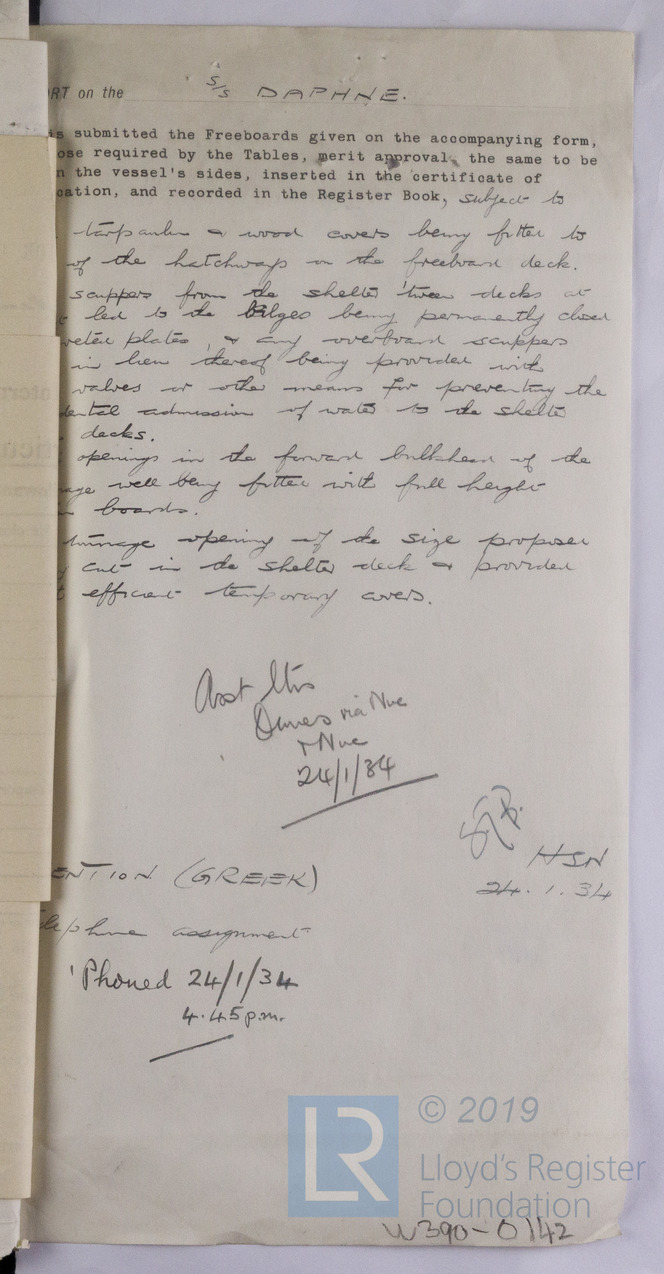 RT on the S/S DAPHNE.
is submitted the Freeboards given on the accompanying form,
ose required by the Tables, merit approval, the same to be
n the vessel's sides, inserted in the certificate of
cation, and recorded in the Register Book, subject to
tarpaulin & wood covers being fitted to
of the hatchways on the freeboard deck.
scuppers from the shelter 'tween decks at
led to the bilges being permanently closed
veted plates, & any overboard scuppers
in lieu thereof being provided with
valves or other means for preventing the
dental admission of water to the shelter
decks.
openings in the forward bulkhead of the
age well being fitted with full height
boards.
tonnage opening of the size proposed
cut in the shelter deck & provided
efficient temporary covers.
Asst
Owners via Nwc
+ Nwc
24/1/34
HSN
24.1.34
ENTION (GREEK)
lephone assignment
'Phoned 24/1/34
4.45 p.m.
LR
© 2019
Lloyd's Register
Foundation
W390-0142